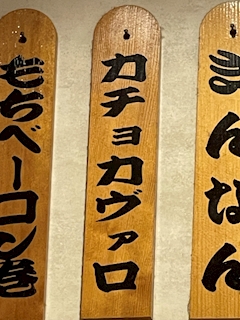 ぎんなん
カチョカヴァロ
もちベーコン巻